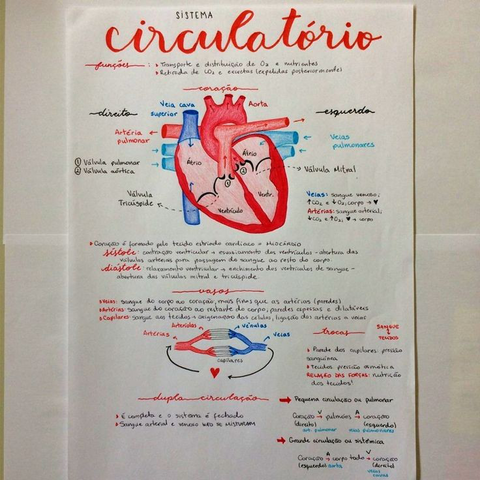 SISTEMA
circulatório
funções: • Transporte e distribuição de O₂ e nutrientes
• Retirada de CO₂ e excretas (expelidas posteriormente)
coração
direito
Veia cava superior
Aorta
esquerdo
Artéria pulmonar
Veias pulmonares
① Válvula pulmonar
② Válvula aórtica
Átrio
Átrio
Válvula Mitral
Válvula Tricúspide
Ventrículo
Ventr.
Veias: sangue venoso,
↑CO₂ e ↓O₂; corpo → ♥
Artérias: sangue arterial,
↓CO₂ e ↑O₂; ♥ → corpo
• Coração é formado pelo tecido estriado cardíaco = MIOCÁRDIO
sístole: contração ventricular → esvaziamento dos ventrículos - abertura das
válvulas arteriais para passagem do sangue ao resto do corpo.
diástole: relaxamento ventricular → enchimento dos ventrículos de sangue -
abertura das válvulas mitral e tricúspide.
vasos
• Veias: sangue do corpo ao coração, mais finas que as artérias (paredes)
• Artérias: sangue do coração ao restante do corpo; paredes espessas e dilatáveis
• Capilares: sangue em tecidos → oxigenação das células, ligação das artérias e veias
Arteríolas
Vênulas
Artérias
Veias
capilares
trocas
SANGUE
TECIDOS
• Parede dos capilares: pressão
sanguínea
• Tecidos: pressão osmótica
RELAÇÃO DAS FORÇAS: nutrição
dos tecidos!
dupla circulação
• É completa e o sistema é fechado
• Sangue arterial e venoso NÃO SE MISTURAM
→ Pequena circulação ou pulmonar
Coração V→ pulmões A→ coração
(direito) (esquerdo)
art. pulmonares veias pulmonares
→ Grande circulação ou sistêmica
Coração A→ corpo todo V→ coração
(esquerdo) aorta (direito)
veias cavas